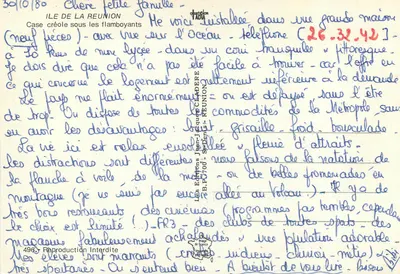 30/10/80 Chère petite famille -
ILE DE LA REUNION
Case créole sous les flamboyants
Me voici installée dans une grande maison
(neuf pièces) - avec vue sur l'Océan - téléphone (26-32-42) -
à 30 km de mon lycée - dans un coin tranquille et pittoresque -
Je dois dire que cela n'a pas été facile à trouver - car l'offre en
ce qui concerne le logement est nettement inférieure à la demande
Le pays me plaît énormément - on est dépaysé sans l'être
de trop. On dispose de toutes les commodités de la Métropole sans
en avoir les désavantages : bruit - grisaille - froid - bousculade -
La vie ici est relax - ensoleillée - pleine d'attraits -
les distractions sont différentes - nous faisons de la natation - de
la planche à voile - de la - ou de belles promenades en
montagne (je ne suis pas encore allée au Volcan). Il y a de
très bons restaurants des cinémas (programmes pas terribles, cependant
le choix est limité !) - FR3 - des clubs de toutes sports - des
magasins fabuleusement achalandés et une population adorable
496 - Reproduction Interdite
Les élèves sont marrants ( indiens chinois métis )
très spontanés - On s'entend bien - A bientôt de vous lire - Bises